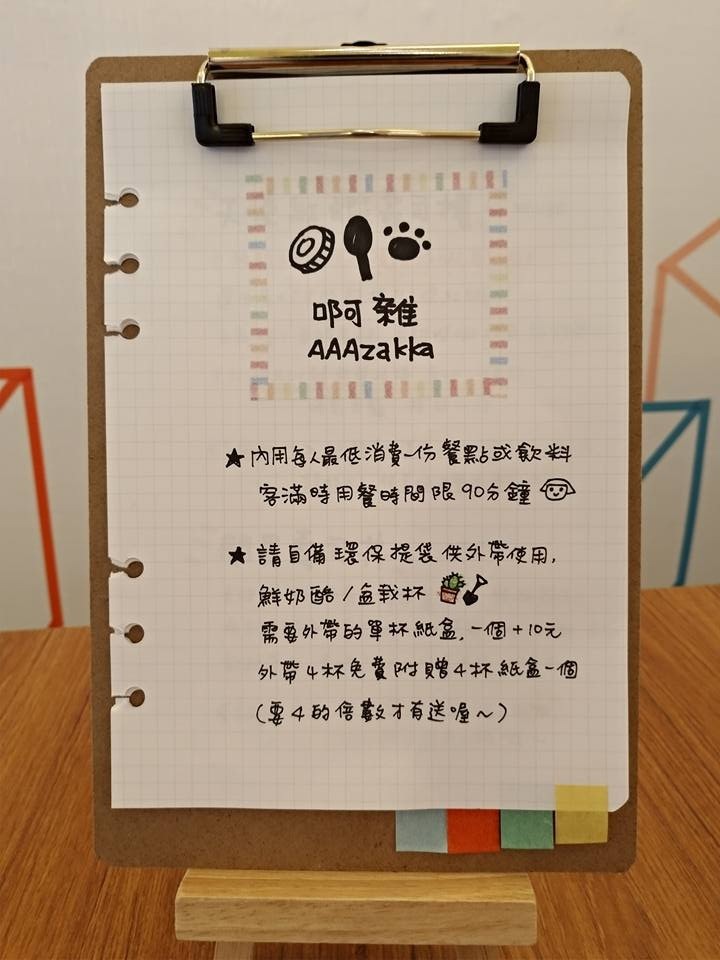 啊雜
AAAzakka
★內用每人最低消費一份餐點或飲料
客滿時用餐時間限90分鐘
★請自備環保提袋供外帶使用,
鮮奶酪/盆栽杯
需要外帶的單杯紙盒,一個+10元
外帶4杯免費附贈4杯紙盒一個
(要4的倍數才有送喔~)